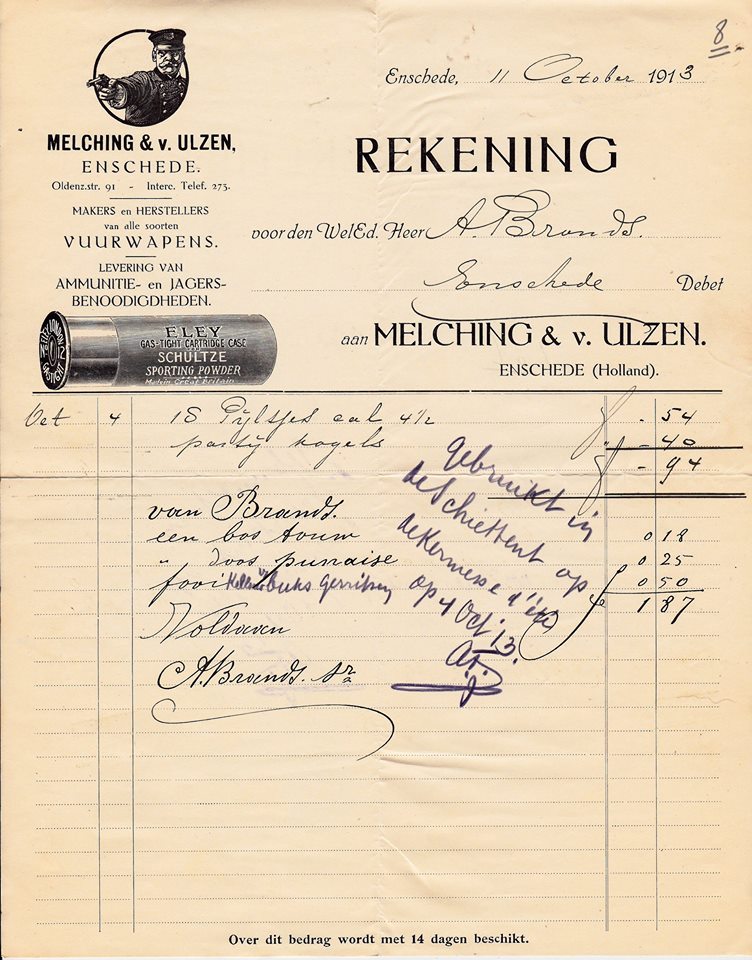 8
Enschede, 11 October 1913
MELCHING & v. ULZEN,
ENSCHEDE.
Oldenz.str. 91 - Interc. Telef. 273.
MAKERS en HERSTELLERS
van alle soorten
VUURWAPENS.
LEVERING VAN
AMMUNITIE- en JAGERS-
BENOODIGDHEDEN.
ELEY LONDON
No 12
GASTIGHT
ELEY
GAS-TIGHT CARTRIDGE CASE
SCHULTZE
SPORTING POWDER
Made in Great Britain
REKENING
voor den WelEd. Heer A. Brands.
Enschede Debet
aan MELCHING & v. ULZEN.
ENSCHEDE (Holland).
Oct 4 18 Pyltjes cal 4½ - 54
party kogels - 40
- 94
van Brands.
een bos touw 0 18
" doos punaise 0 25
fooi Buks Gerritsen 0 50
1 87
Voldaan
A. Brands. Sr
Gebruikt in
de Schiettent op
de Kermesse d'été
op 4 Oct. 13.
Over dit bedrag wordt met 14 dagen beschikt.